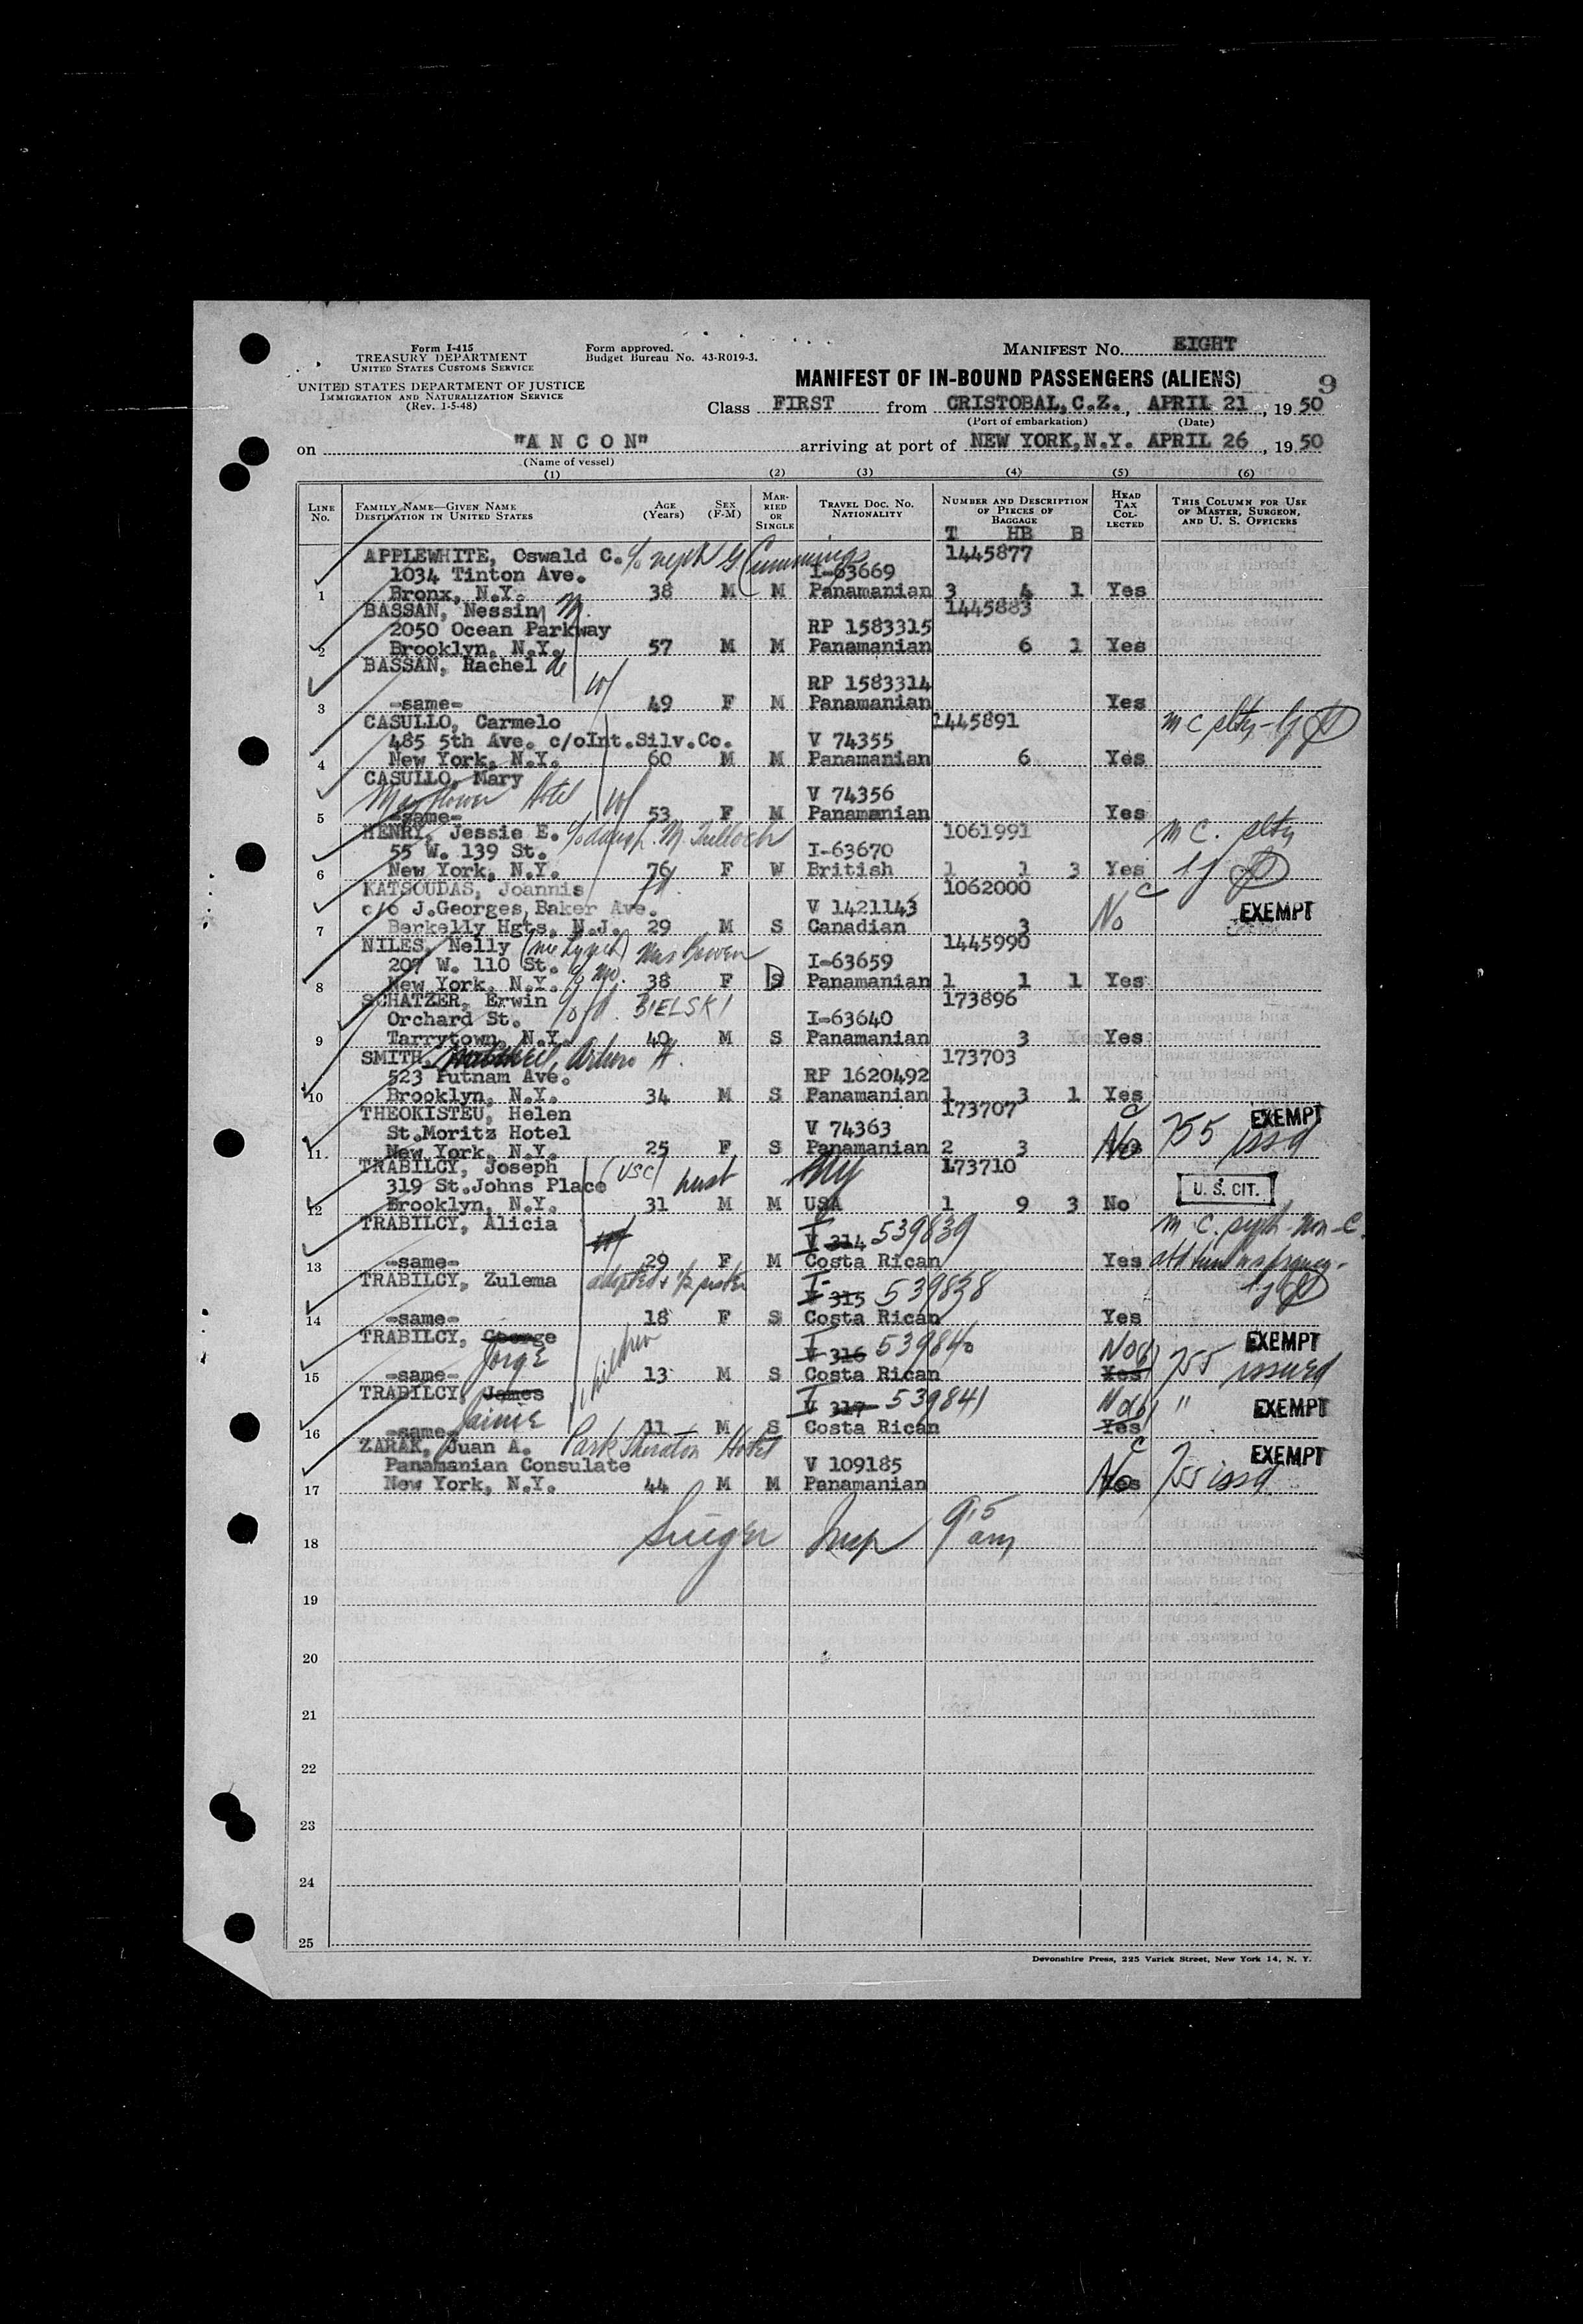 Form I-415
TREASURY DEPARTMENT
UNITED STATES CUSTOMS SERVICE
Form approved.
Budget Bureau No. 43-R019-3.
MANIFEST NO. EIGHT
UNITED STATES DEPARTMENT OF JUSTICE
IMMIGRATION AND NATURALIZATION SERVICE
(Rev. 1-5-48)
MANIFEST OF IN-BOUND PASSENGERS (ALIENS) 9
Class FIRST from CRISTOBAL, C.Z., APRIL 21, 1950
(Port of embarkation) (Date)
on "A N C O N" arriving at port of NEW YORK, N.Y. APRIL 26, 1950
(Name of vessel)
(1) (2) (3) (4) (5) (6)
LINE NO. FAMILY NAME—GIVEN NAME DESTINATION IN UNITED STATES AGE (Years) SEX (F-M) MARRIED OR SINGLE TRAVEL DOC. NO. NATIONALITY NUMBER AND DESCRIPTION OF PIECES OF BAGGAGE HEAD TAX COLLECTED THIS COLUMN FOR USE OF MASTER, SURGEON, AND U. S. OFFICERS
T HB B
APPLEWHITE, Oswald C. c/o neph G Cummings 1445877
1034 Tinton Ave. I-63669
1 Bronx, N.Y. 38 M M Panamanian 3 4 1 Yes
BASSAN, Nessim M. 1445883
2050 Ocean Parkway RP 1583315
2 Brooklyn, N.Y. 57 M M Panamanian 6 1 Yes
BASSAN, Rachel de
W/ RP 1583314
3 -same- 49 F M Panamanian Yes
CASULLO, Carmelo 1445891
485 5th Ave. c/oInt.Silv.Co. V 74355
4 New York, N.Y. 60 M M Panamanian 6 Yes
CASULLO, Mary
Mayflower Hotel W/ V 74356
5 -same- 53 F M Panamanian Yes
HENRY, Jessie E. c/o daugh. M. Tulloch 1061991
55 W. 139 St. I-63670
6 New York, N.Y. 76 F W British 1 1 3 Yes
KATSOUDAS, Joannis 1062000
c/o J.Georges, Baker Ave. V 1421143 EXEMPT
7 Berkelly Hgts. N.J. 29 M S Canadian 3 No
NILES, Nelly (nee Lynch) Mrs Bowen 1445990
207 W. 110 St. c/o mo. I-63659
8 New York, N.Y. 38 F D Panamanian 1 1 1 Yes
SCHATZER, Erwin c/o fd. BIELSKI 173896
Orchard St. I-63640
9 Tarrytown, N.Y. 40 M S Panamanian 3 Yes
SMITH, Arturo A. 173703
523 Putnam Ave. RP 1620492
10 Brooklyn, N.Y. 34 M S Panamanian 1 3 1 Yes
THEOKISTEU, Helen 173707 EXEMPT
St.Moritz Hotel V 74363 755 issd
11. New York, N.Y. 25 F S Panamanian 2 3 No
TRABILCY, Joseph (USC) husb 173710
319 St.Johns Place U. S. CIT.
12 Brooklyn, N.Y. 31 M M USA 1 9 3 No
TRABILCY, Alicia
W/ V 314 I 539839
13 -same- 29 F M Costa Rican Yes
TRABILCY, Zulema adopted & 1/2 sister
V 315 I 539838
14 -same- 18 F S Costa Rican Yes
TRABILCY, George EXEMPT
Jorge children V 316 I 539840 No 755 issued
15 -same- 13 M S Costa Rican Yes
TRABILCY, James No "
Jaime V 317 I 539841 EXEMPT
16 -same- 11 M S Costa Rican Yes
ZARAK, Juan A. Park Sheraton Hotel EXEMPT
Panamanian Consulate V 109185
17 New York, N.Y. 44 M M Panamanian No 755 issd
18 Insp 9.15 am
19
20
21
22
23
24
25
Devonshire Press, 225 Varick Street, New York 14, N. Y.